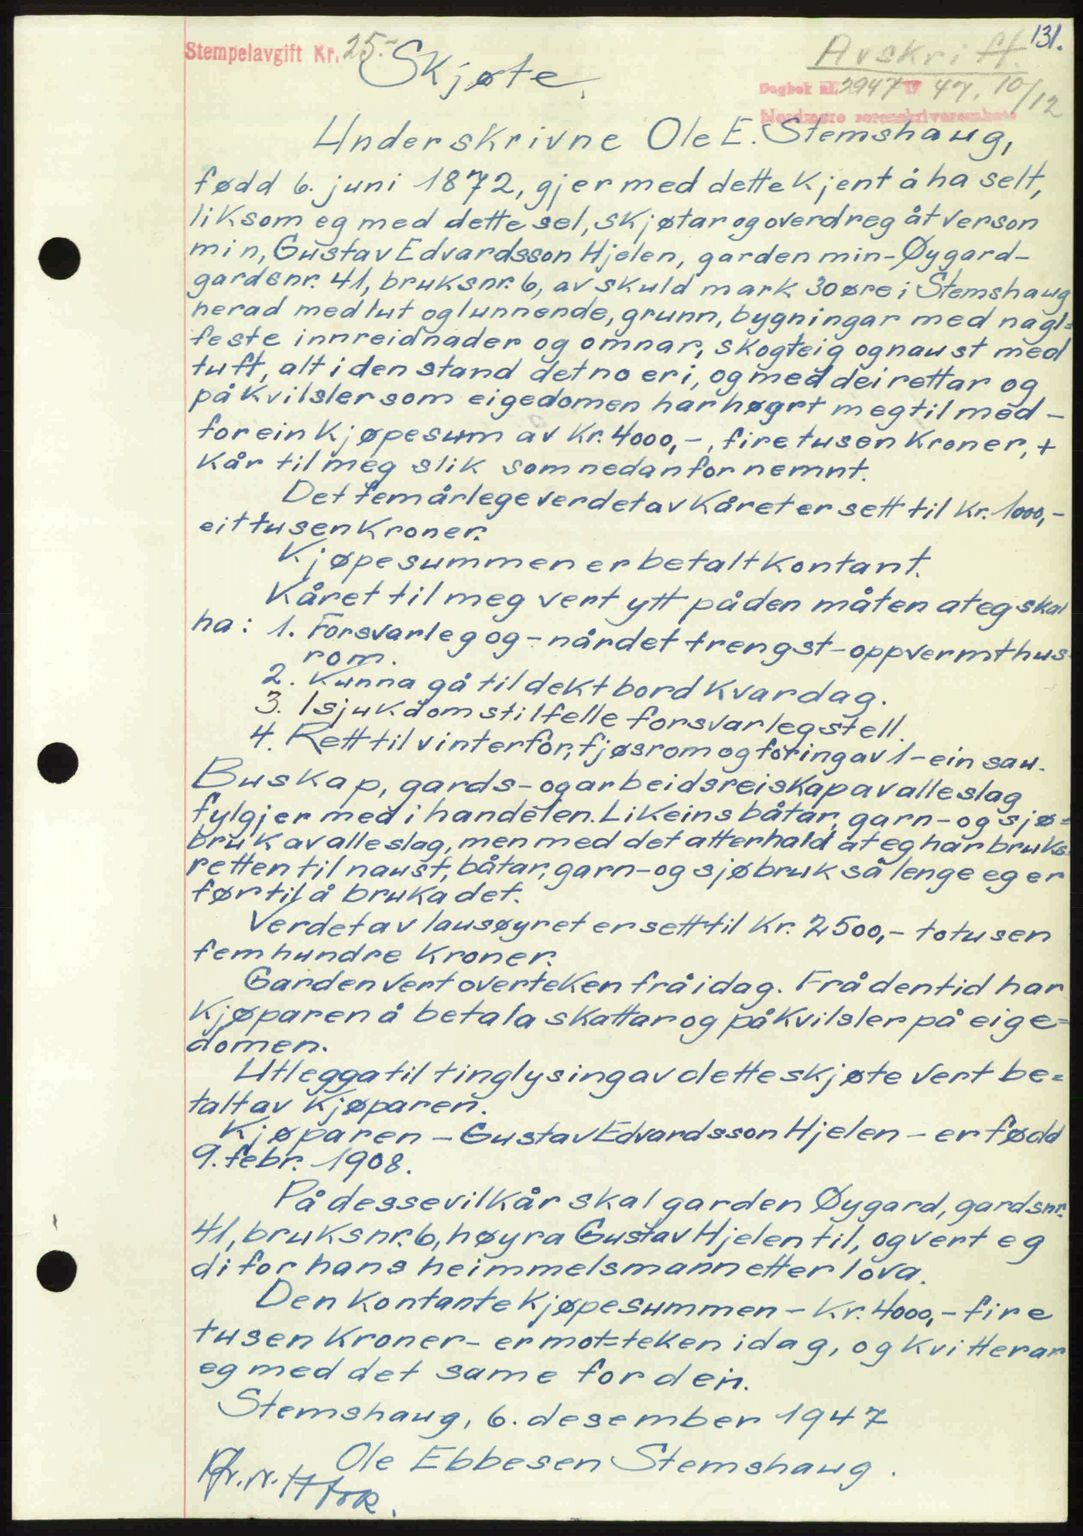 131.
Stempelavgift Kr. 25.-
Skjøte.
Avskrift.
Dagbok nr. 2947 19 47. 10/12
Nordmøre sorenskriverembete
Underskrivne Ole E. Stemshaug,
fødd 6. juni 1872, gjer med dette kjent å ha selt,
liksom eg med dette sel, skjøtar og overdreg åt verson
min, Gustav Edvardsson Hjelen, garden min - Øygard -
gardsnr. 41, bruksnr. 6, av skuld mark 30 øre i Stemshaug
herad med lut og lunnende, grunn, bygningar med nagl=
feste innreidnader og omnar, skogteig og naust med
tuft, alt i den stand det no er i, og med dei rettar og
påkvilsler som eigedomen har høyrt meg til med -
for ein kjøpesum av kr. 4000,-, fire tusen kroner, +
kår til meg slik som nedanfor nemnt.
Det femårlege verdet av kåret er sett til kr. 1000,-
eittusen kroner.
Kjøpesummen er betalt kontant.
Kåret til meg vert ytt på den måten at eg skal
ha: 1. Forsvarleg og - når det trengst - oppvermt hus=
rom.
2. Kunna gå til dekt bord kvar dag.
3. I sjukdomstilfelle forsvarleg stell.
4. Rett til vinterfòr, fjøsrom og fòring av 1 - ein sau.
Buskap, gards- og arbeidsreiskap av alle slag
fylgjer med i handelen. Likeins båtar, garn- og sjø=
bruk av alle slag, men med det atterhald at eg har bruks=
retten til naust, båtar, garn- og sjøbruk så lenge eg er
før til å bruka det.
Verdet av lausøyret er sett til kr. 2500,- totusen
femhundre kroner.
Garden vert overteken frå i dag. Frå den tid har
kjøparen å betala skattar og påkvilsler på eige=
domen.
Utlegga til tinglysing av dette skjøte vert be=
talt av kjøparen.
Kjøparen - Gustav Edvardsson Hjelen - er fødd
9. febr. 1908.
På desse vilkår skal garden Øygard, gardsnr.
41, bruksnr. 6, høyra Gustav Hjelen til, og vert eg
di for hans heimmelsmann etter lova.
Den kontante kjøpesummen - kr. 4000,- fire
tusen kroner - er mot=teken i dag, og kvitterar
eg med det same for den.
Stemshaug, 6. desember 1947
Ole Ebbesen Stemshaug.